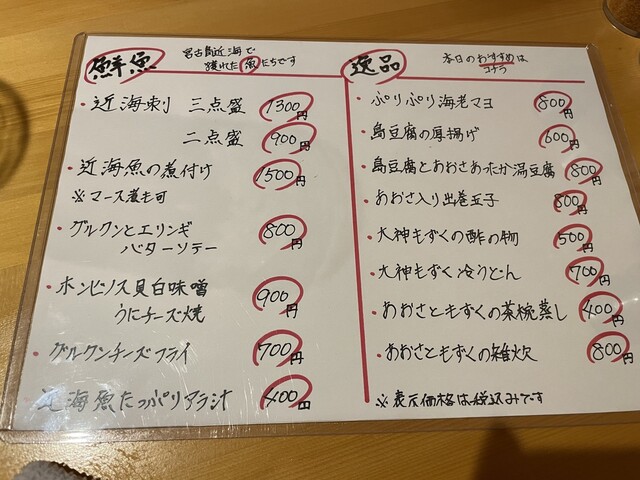 鮮魚
宮古島近海で
獲れた魚たちです
・近海刺 三点盛 1300円
二点盛 900円
・近海魚の煮付け 1500円
※マース煮も可
・グルクンとエリンギ
バターソテー 800円
・ホンビノス貝白味噌
うにチーズ焼 900円
・グルクンチーズフライ 700円
近海魚たっぷりアラ汁 400円
逸品
本日のおすすめは
コチラ
・ぷりぷり海老マヨ 800円
・島豆腐の厚揚げ 600円
・島豆腐とあおさあったか湯豆腐 800円
・あおさ入り出巻玉子 800円
・大神もずくの酢の物 500円
・大神もずく冷うどん 700円
・あおさともずくの茶椀蒸し 400円
・あおさともずくの雑炊 800円
※表示価格は税込みです